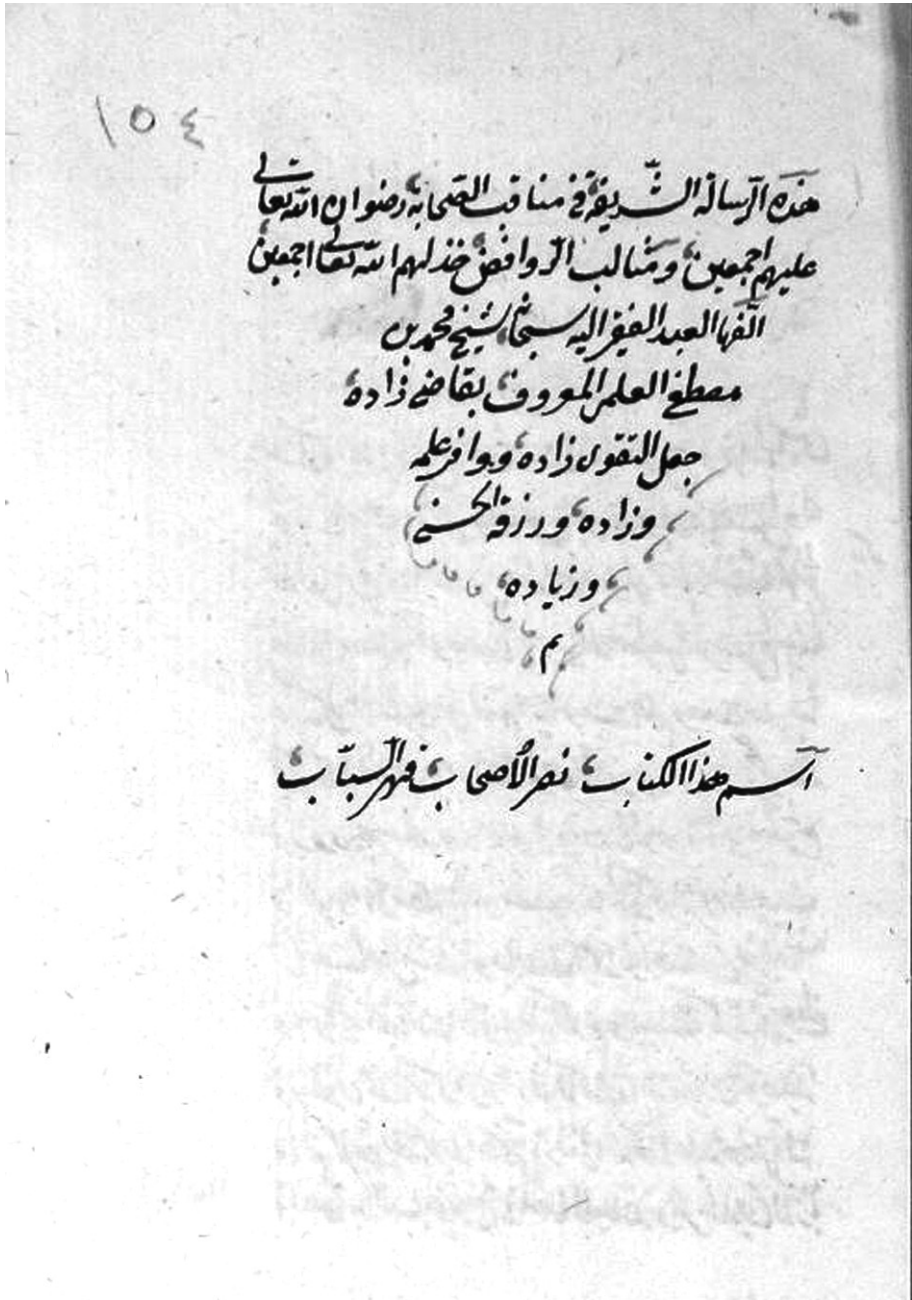 ١٥٤
هذه الرسالة الشريفة في مناقب الصحابة رضوان الله تعالى
عليهم اجمعين ومثالب الروافض خذلهم الله تعالى اجمعين
الفها العبد الفقير اليه سبحانه الشيخ محمد بن
مصطفى العلمي المعروف بقاضي زاده
جعل التقوى زاده ووافر علمه
وزاده ورزقه الحسنى
وزياده
م
اسم هذا الكتاب نصر الاصحاب وقهر السباب